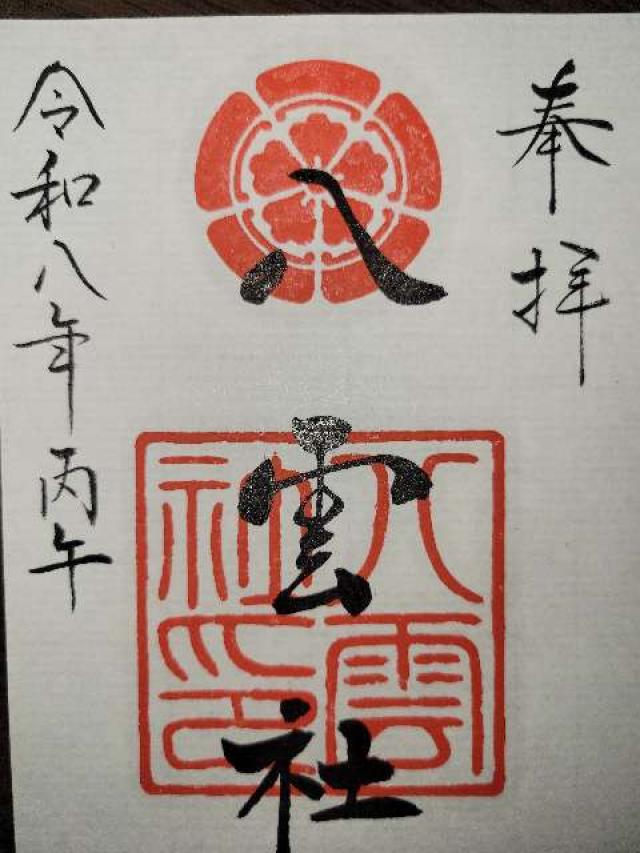 奉拝
八雲社
八雲社印
令和八年丙午